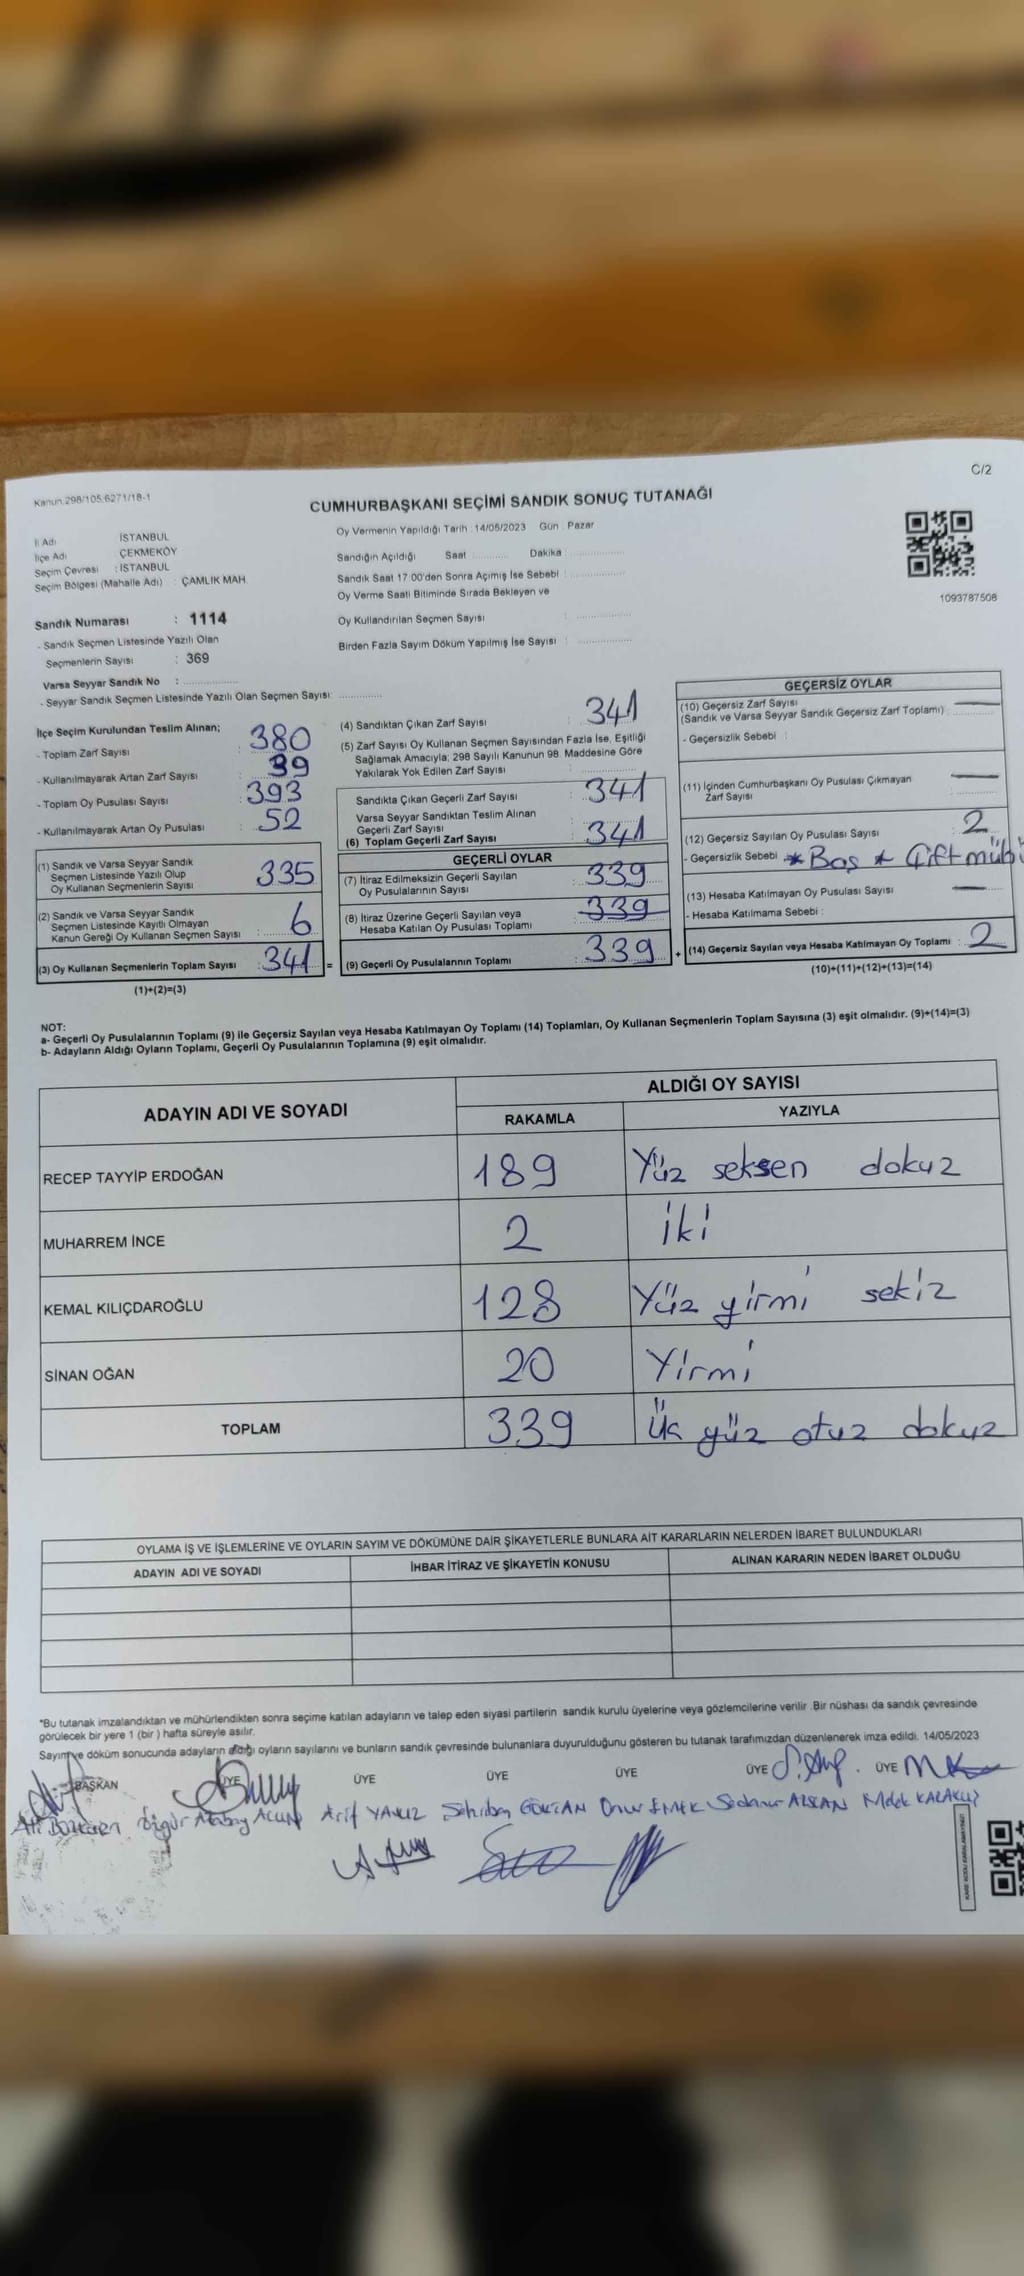 C/2
Kanun.298/105.6271/18-1
CUMHURBAŞKANI SEÇİMİ SANDIK SONUÇ TUTANAĞI
İl Adı İSTANBUL
İlçe Adı ÇEKMEKÖY
Seçim Çevresi : İSTANBUL
Seçim Bölgesi (Mahalle Adı) : ÇAMLIK MAH.
Sandık Numarası : 1114
- Sandık Seçmen Listesinde Yazılı Olan
Seçmenlerin Sayısı : 369
Varsa Seyyar Sandık No :
- Seyyar Sandık Seçmen Listesinde Yazılı Olan Seçmen Sayısı:
Oy Vermenin Yapıldığı Tarih : 14/05/2023 Gün : Pazar
Sandığın Açıldığı Saat Dakika
Sandık Saat 17:00'den Sonra Açımış İse Sebebi :
Oy Verme Saati Bitiminde Sırada Bekleyen ve
Oy Kullandırılan Seçmen Sayısı :
Birden Fazla Sayım Döküm Yapılmış İse Sayısı :
1093787508
İlçe Seçim Kurulundan Teslim Alınan;
- Toplam Zarf Sayısı : 380
- Kullanılmayarak Artan Zarf Sayısı : 39
- Toplam Oy Pusulası Sayısı : 393
- Kullanılmayarak Artan Oy Pusulası : 52
(1) Sandık ve Varsa Seyyar Sandık
Seçmen Listesinde Yazılı Olup
Oy Kullanan Seçmenlerin Sayısı : 335
(2) Sandık ve Varsa Seyyar Sandık
Seçmen Listesinde Kayıtlı Olmayan
Kanun Gereği Oy Kullanan Seçmen Sayısı : 6
(3) Oy Kullanan Seçmenlerin Toplam Sayısı : 341 =
(1)+(2)=(3)
(4) Sandıktan Çıkan Zarf Sayısı : 341
(5) Zarf Sayısı Oy Kullanan Seçmen Sayısından Fazla İse, Eşitliği
Sağlamak Amacıyla; 298 Sayılı Kanunun 98. Maddesine Göre
Yakılarak Yok Edilen Zarf Sayısı :
Sandıkta Çıkan Geçerli Zarf Sayısı : 341
Varsa Seyyar Sandıktan Teslim Alınan
Geçerli Zarf Sayısı :
(6) Toplam Geçerli Zarf Sayısı : 341
GEÇERLİ OYLAR
(7) İtiraz Edilmeksizin Geçerli Sayılan
Oy Pusulalarının Sayısı : 339
(8) İtiraz Üzerine Geçerli Sayılan veya
Hesaba Katılan Oy Pusulası Toplamı : 339
(9) Geçerli Oy Pusulalarının Toplamı : 339 +
GEÇERSİZ OYLAR
(10) Geçersiz Zarf Sayısı
(Sandık ve Varsa Seyyar Sandık Geçersiz Zarf Toplamı) :
- Geçersizlik Sebebi :
(11) İçinden Cumhurbaşkanı Oy Pusulası Çıkmayan
Zarf Sayısı :
(12) Geçersiz Sayılan Oy Pusulası Sayısı : 2
- Geçersizlik Sebebi : * Boş * Çift
(13) Hesaba Katılmayan Oy Pusulası Sayısı :
- Hesaba Katılmama Sebebi :
(14) Geçersiz Sayılan veya Hesaba Katılmayan Oy Toplamı : 2
(10)+(11)+(12)+(13)=(14)
NOT:
a- Geçerli Oy Pusulalarının Toplamı (9) ile Geçersiz Sayılan veya Hesaba Katılmayan Oy Toplamı (14) Toplamları, Oy Kullanan Seçmenlerin Toplam Sayısına (3) eşit olmalıdır. (9)+(14)=(3)
b- Adayların Aldığı Oyların Toplamı, Geçerli Oy Pusulalarının Toplamına (9) eşit olmalıdır.
ADAYIN ADI VE SOYADI ALDIĞI OY SAYISI
RAKAMLA YAZIYLA
RECEP TAYYİP ERDOĞAN 189 Yüz seksen dokuz
MUHARREM İNCE 2 iki
KEMAL KILIÇDAROĞLU 128 Yüz yirmi sekiz
SİNAN OĞAN 20 Yirmi
TOPLAM 339 Üç yüz otuz dokuz
OYLAMA İŞ VE İŞLEMLERİNE VE OYLARIN SAYIM VE DÖKÜMÜNE DAİR ŞİKAYETLERLE BUNLARA AİT KARARLARIN NELERDEN İBARET BULUNDUKLARI
ADAYIN ADI VE SOYADI İHBAR İTİRAZ VE ŞİKAYETİN KONUSU ALINAN KARARIN NEDEN İBARET OLDUĞU
*Bu tutanak imzalandıktan ve mühürlendikten sonra seçime katılan adayların ve talep eden siyasi partilerin sandık kurulu üyelerine veya gözlemcilerine verilir. Bir nüshası da sandık çevresinde
görülecek bir yere 1 (bir ) hafta süreyle asılır.
Sayım ve döküm sonucunda adayların aldığı oyların sayılarını ve bunların sandık çevresinde bulunanlara duyurulduğunu gösteren bu tutanak tarafımızdan düzenlenerek imza edildi. 14/05/2023
BAŞKAN ÜYE ÜYE ÜYE ÜYE ÜYE ÜYE
Özgür Arif YAVUZ Onur EMEK Sedanur ARSLAN Melek